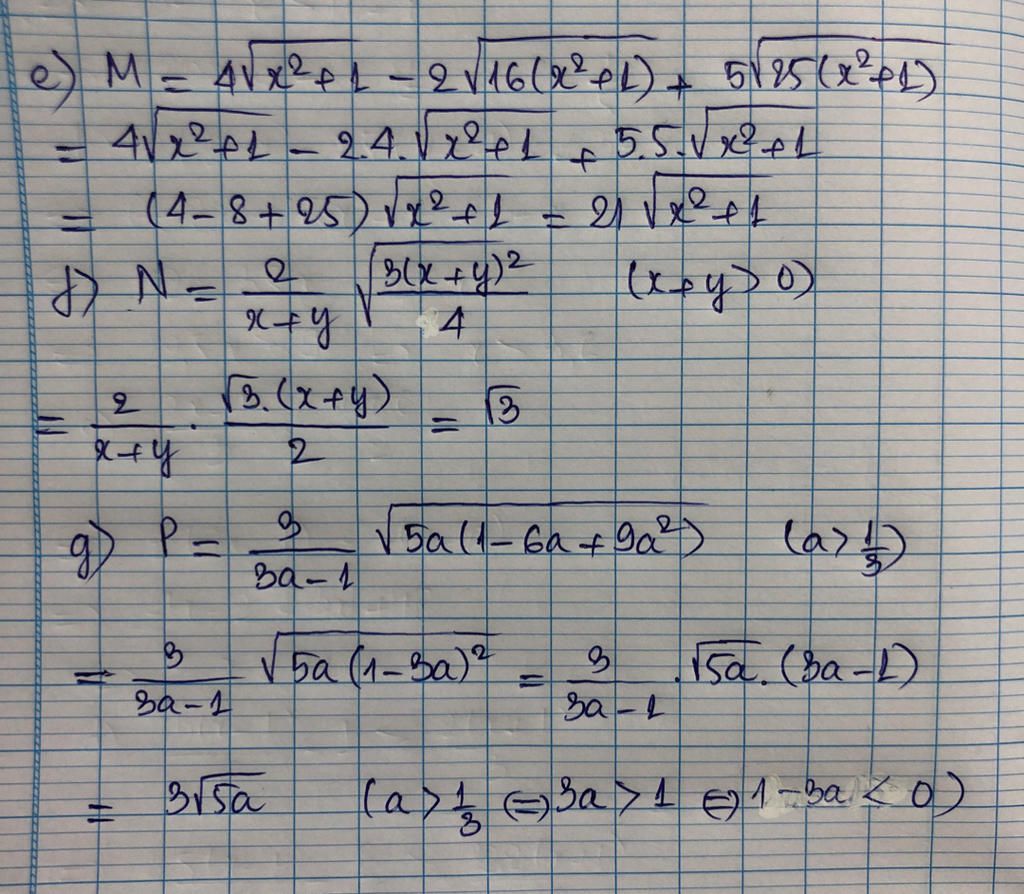 e) M = 4√(x²+1) - 2√(16(x²+1)) + 5√(25(x²+1))
= 4√(x²+1) - 2.4.√(x²+1) + 5.5.√(x²+1)
= (4-8+25)√(x²+1) = 21√(x²+1)
f) N = 2/(x+y) √(3(x+y)²/4) (x+y>0)
= 2/(x+y) . √3.(x+y)/2 = √3
g) P = 3/(3a-1) √(5a(1-6a+9a²)) (a>1/3)
= 3/(3a-1) √(5a(1-3a)²) = 3/(3a-1) . √5a.(3a-1)
= 3√5a (a>1/3 ⇔ 3a>1 ⇔ 1-3a<0)